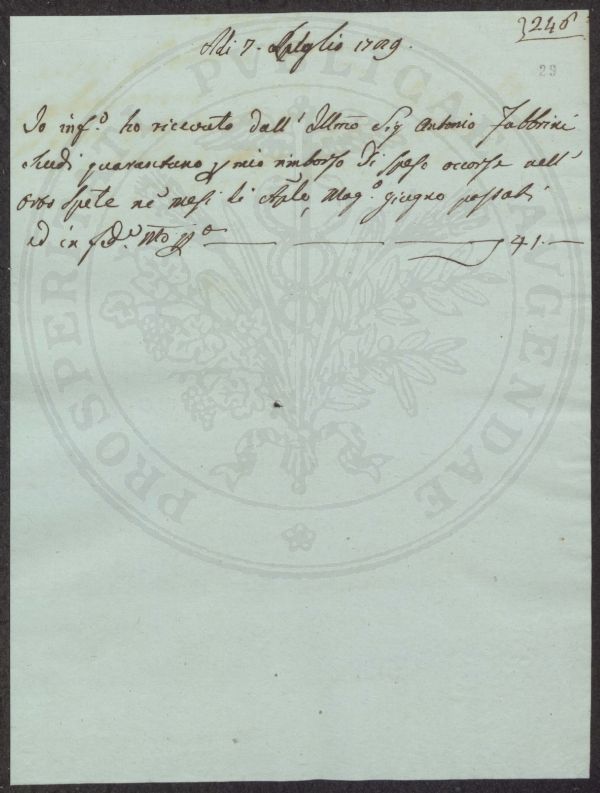 3248
29
Adi 7. Luglio 1789.
Io inf.o ho ricevuto dall' Illmo Sig Antonio Fabbrini
scudi quarantuno p mio rimborso di spese occorse nell'
ne mesi di Aple, Mag.o giugno passati
ed in fede Mo pp.a 41.
PROSPERI PVBLICAE AVGENDAE